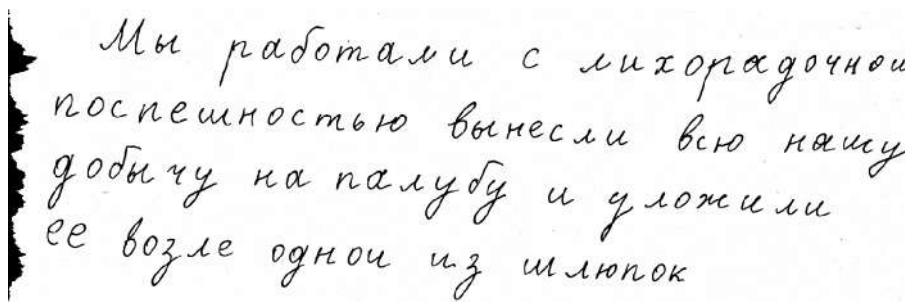 Мы работали с лихорадочной
поспешностью вынесли всю нашу
добычу на палубу и уложили
ее возле одной из шлюпок